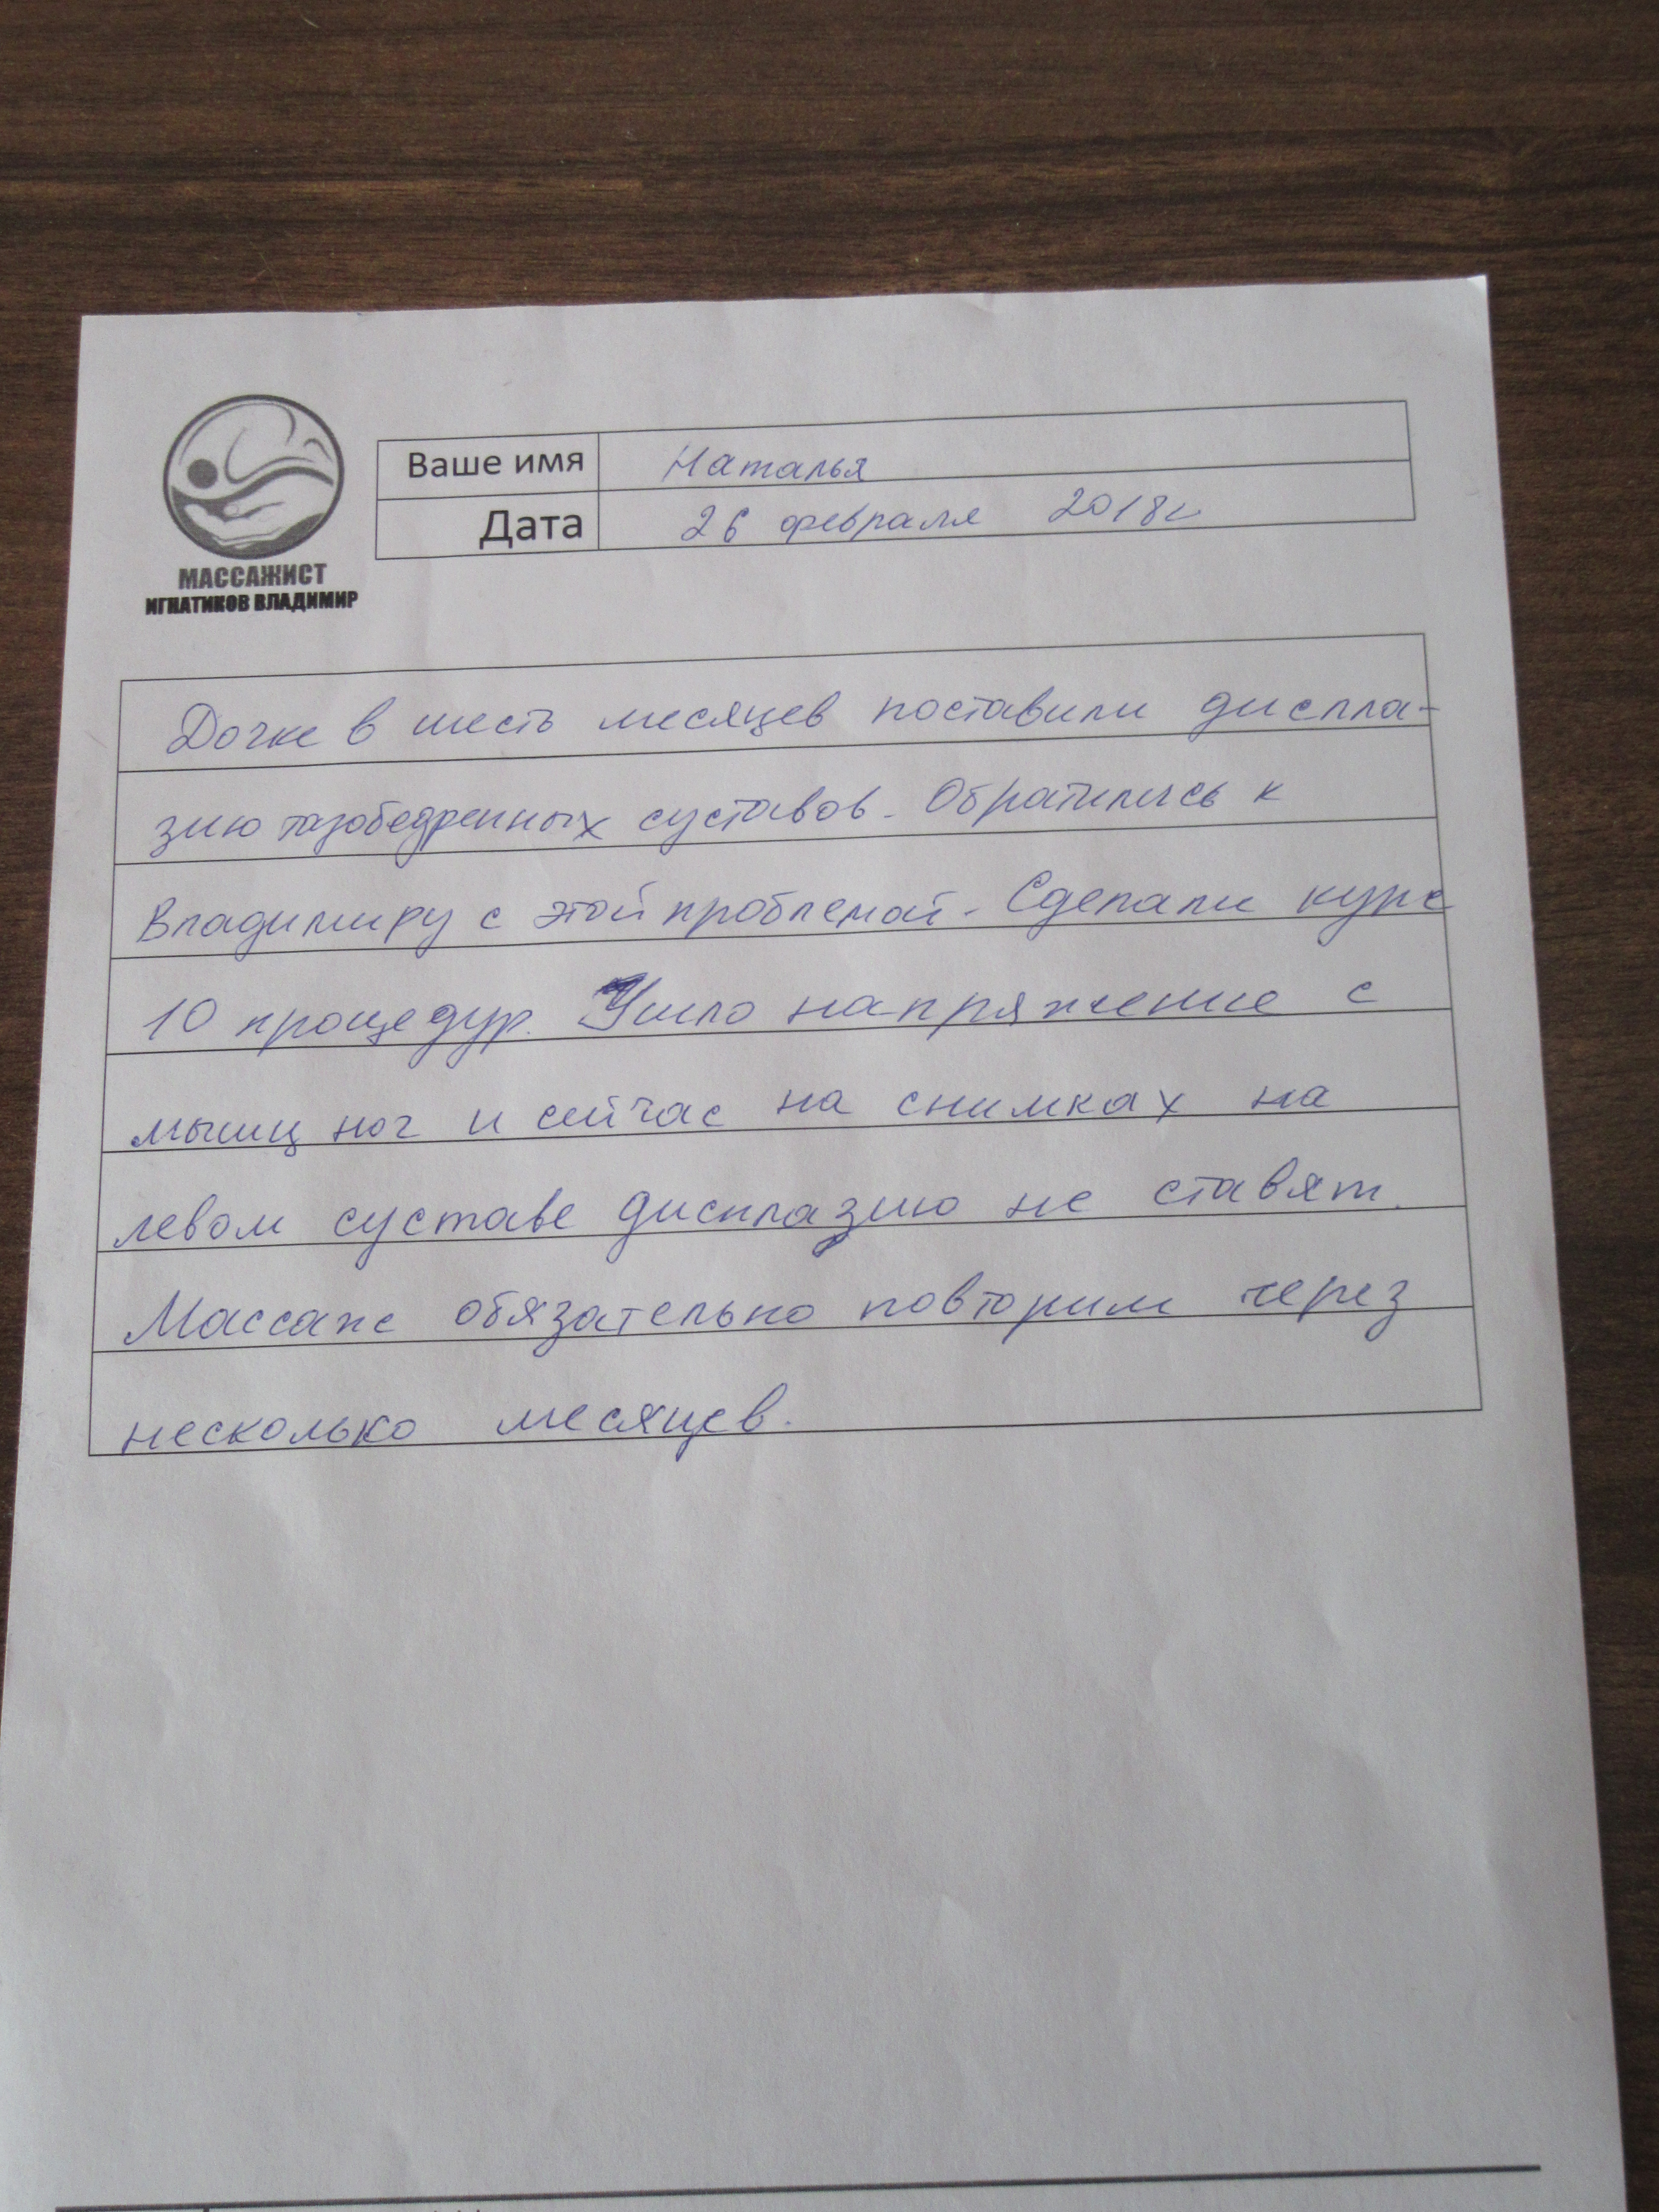 Ваше имя Наталья
Дата 26 февраля 2018г
МАССАЖИСТ
ИГНАТИКОВ ВЛАДИМИР
Дочке в шесть месяцев поставили диспла-
зию тазобедренных суставов. Обратились к
Владимиру с этой проблемой. Сделали курс
10 процедур. Ушло напряжение с
мышц ног и сейчас на снимках на
левом суставе дисплазию не ставят.
Массаж обязательно повторим через
несколько месяцев.